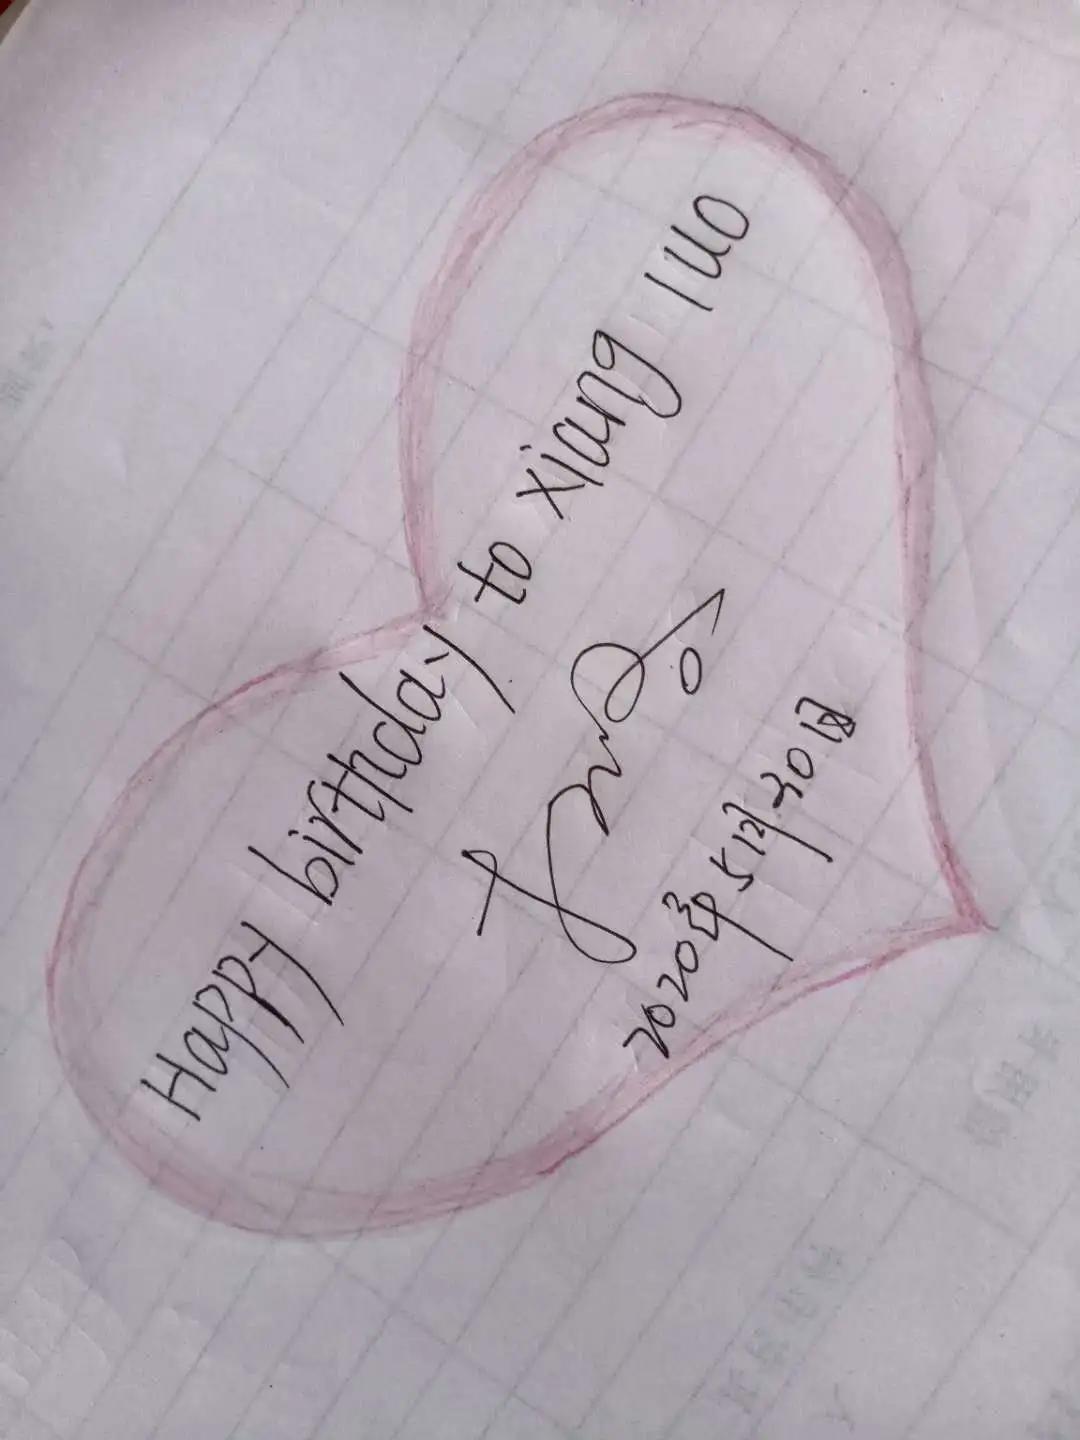 Happy birthday to xiang luo
2020年5月30日